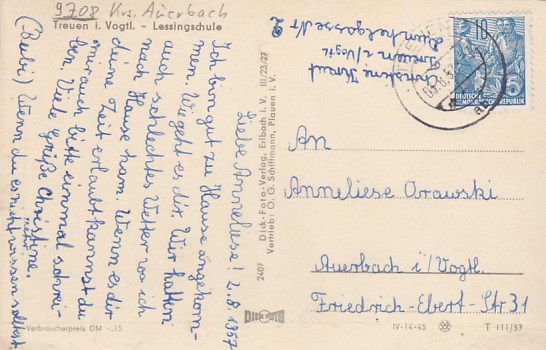 9708 Krs. Auerbach
Treuen i. Vogtl. - Lessingschule
Liebe Anneliese! 2.8.1957
Ich bin gut zu Hause angekom-
men. Wie geht es dir. Wir hatten
auch schlechtes Wetter wo ich
nach Hause kam. Wenn es dir
deine Zeit erlaubt kannst du
mir auch bitte einmal schrei-
ben. Viele Grüße Christine.
(Bubi) Wenn du es nicht wissen solltest
Verbraucherpreis DM -,15
2407 Dick-Foto-Verlag, Erlbach i. V. III/23/27
Vertrieb: O. G. Schiffmann, Plauen i. V.
DICK-FOTO
Christine
Treuen i/Vogtl
Nr 2
10
DEUTSCHE
DEMOKRATISCHE REPUBLIK
An
Anneliese Orawski
Auerbach i/Vogtl.
Friedrich-Ebert-Str 31
IV-14-45
T 111/57